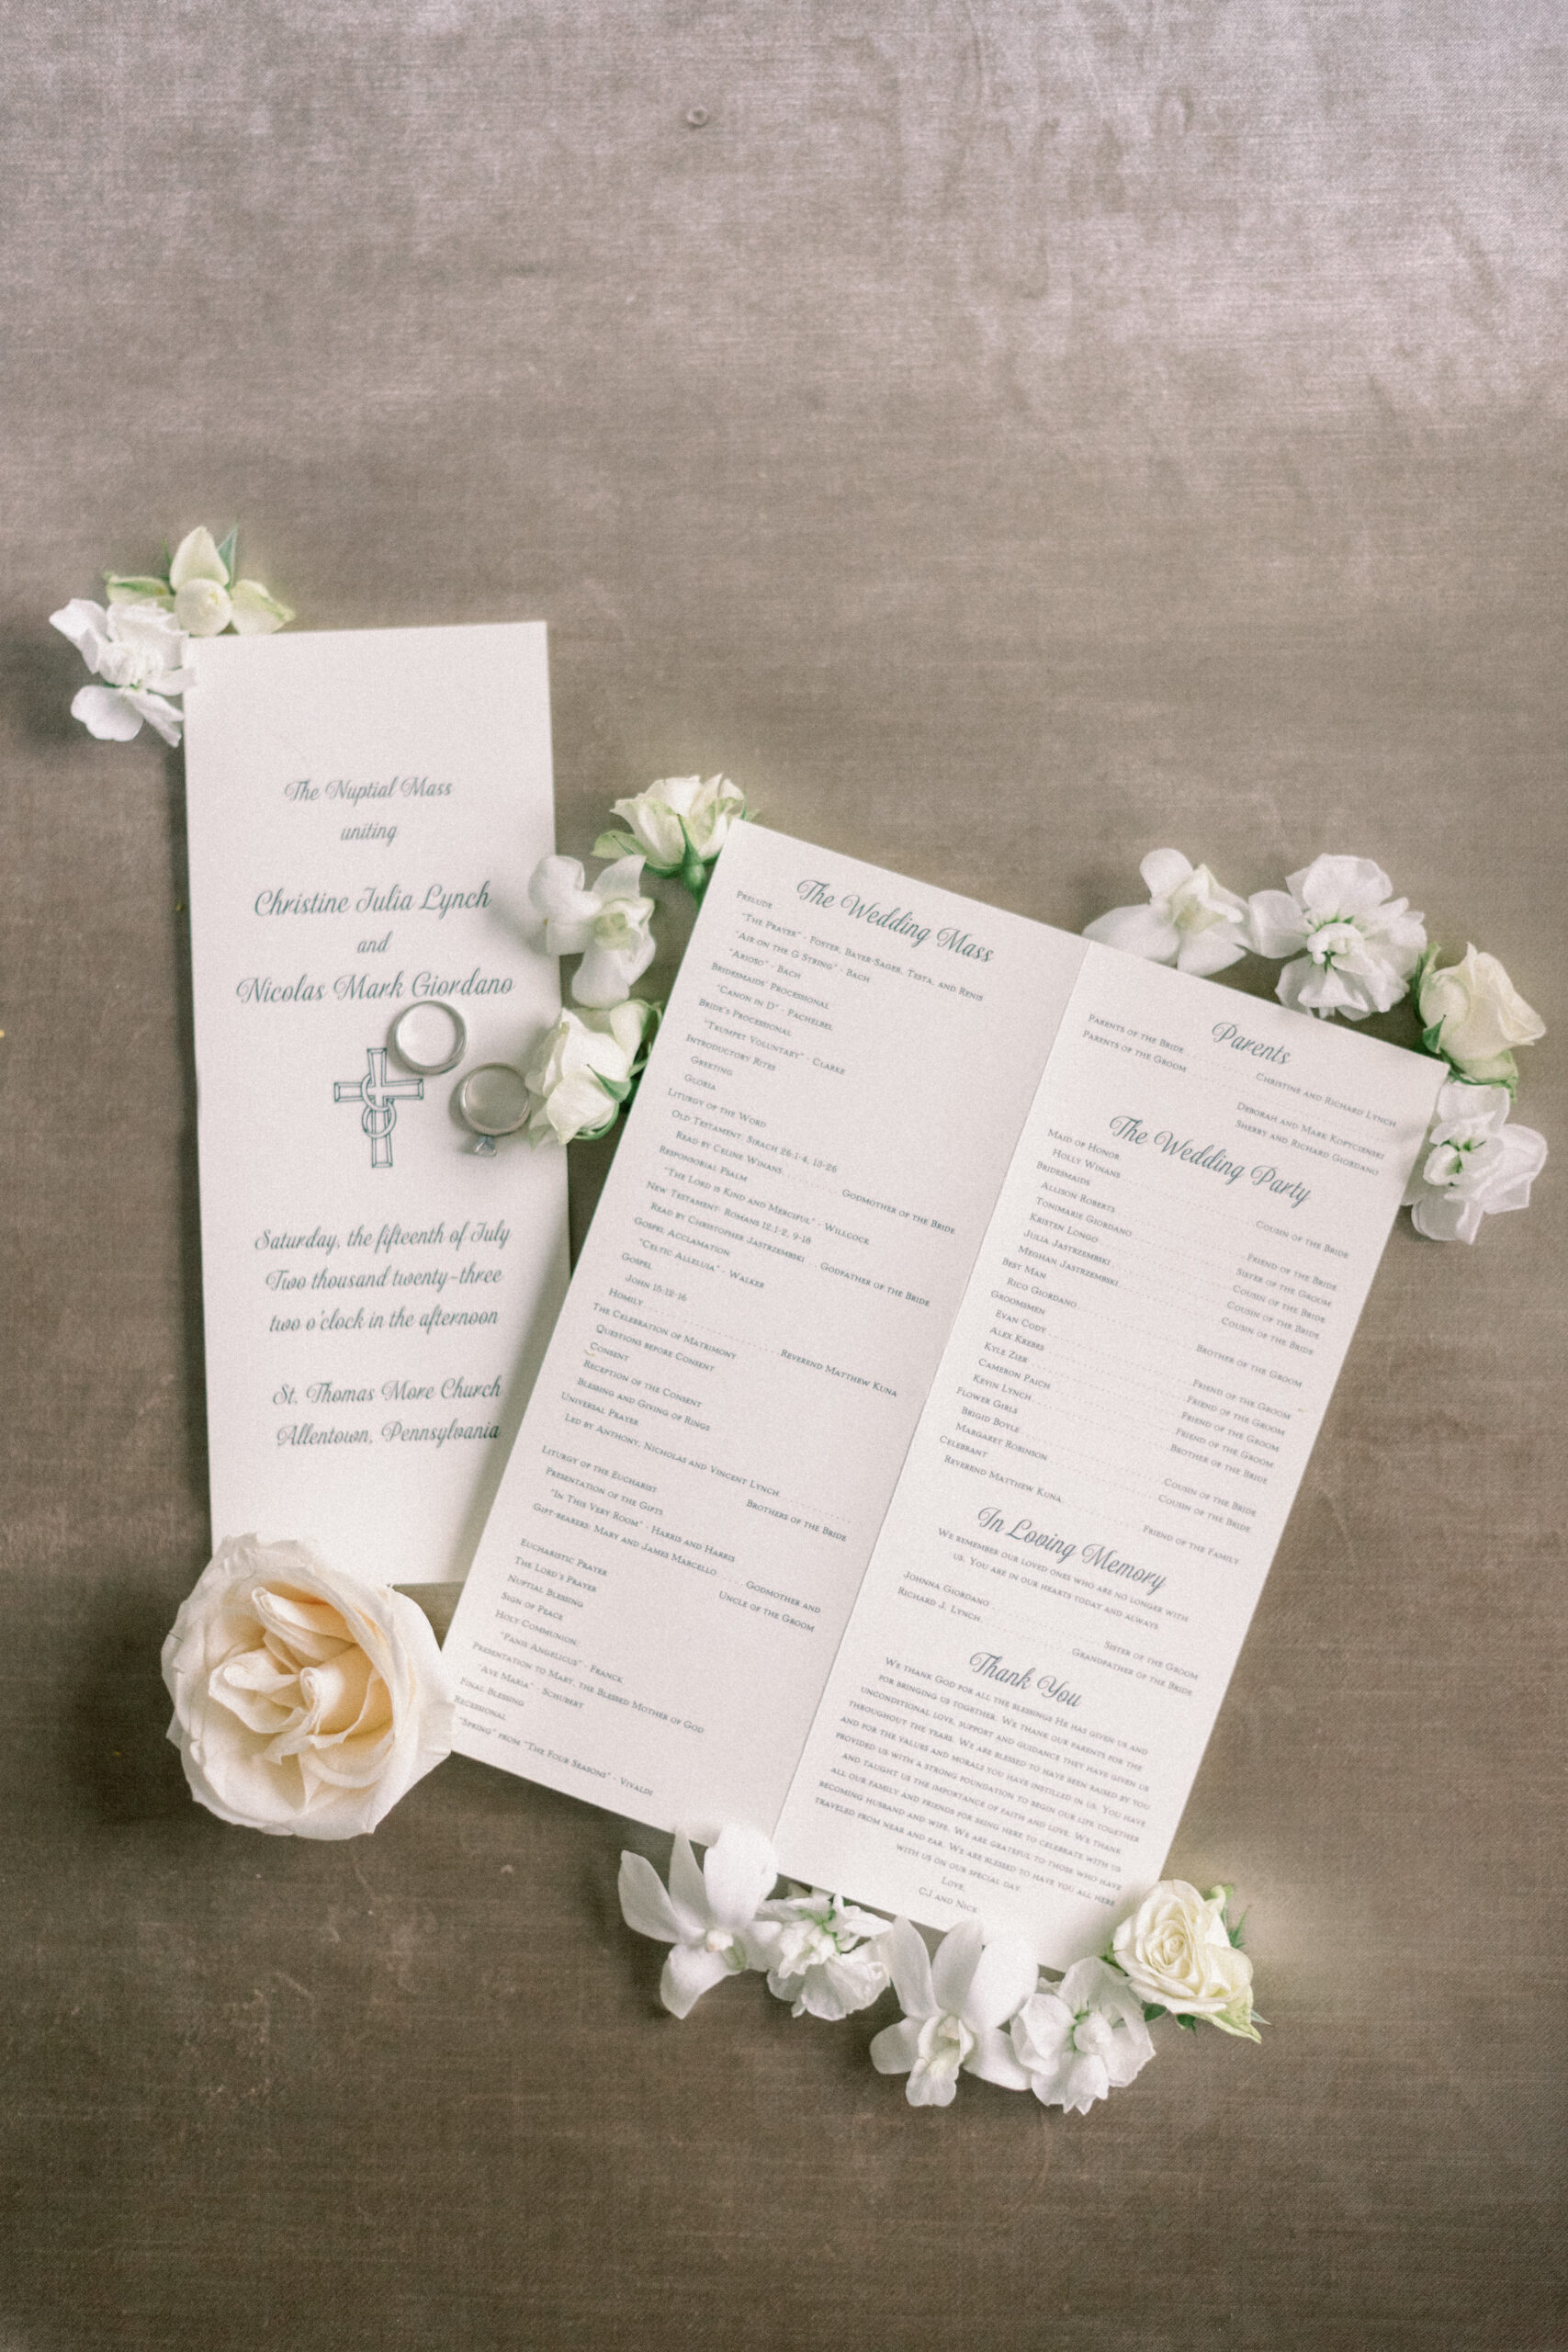 The Nuptial Mass
uniting
Christine Julia Lynch
and
Nicolas Mark Giordano
Saturday, the fifteenth of July
Two thousand twenty-three
two o'clock in the afternoon
St. Thomas More Church
Allentown, Pennsylvania
The Wedding Mass
Prelude
"The Prayer" - Foster, Bayer-Sager, Testa, and Renis
"Air on the G String" - Bach
"Arioso" - Bach
Bridesmaids' Processional
"Canon in D" - Pachelbel
Bride's Processional
"Trumpet Voluntary" - Clarke
Introductory Rites
Greeting
Gloria
Liturgy of the Word
Old Testament: Sirach 26:1-4, 13-26
Read by Celine Winans Godmother of the Bride
Responsorial Psalm
"The Lord is Kind and Merciful" - Willcock
New Testament: Romans 12:1-2, 9-18
Read by Christopher Jastrzembski Godfather of the Bride
Gospel Acclamation
"Celtic Alleluia" - Walker
Gospel
John 15:12-16
Homily Reverend Matthew Kuna
The Celebration of Matrimony
Questions before Consent
Consent
Reception of the Consent
Blessing and Giving of Rings
Universal Prayer
Led by Anthony, Nicholas and Vincent Lynch
Brothers of the Bride
Liturgy of the Eucharist
Presentation of the Gifts
"In This Very Room" - Harris and Harris
Gift-bearers: Mary and James Marcello Godmother and
Uncle of the Groom
Eucharistic Prayer
The Lord's Prayer
Nuptial Blessing
Sign of Peace
Holy Communion:
"Panis Angelicus" - Franck
Presentation to Mary, the Blessed Mother of God
"Ave Maria" - Schubert
Final Blessing
Recessional
"Spring" from "The Four Seasons" - Vivaldi
Parents
Parents of the Bride Christine and Richard Lynch
Parents of the Groom Deborah and Mark Kopycienski
Sherry and Richard Giordano
The Wedding Party
Maid of Honor
Holly Winans Cousin of the Bride
Bridesmaids
Allison Roberts Friend of the Bride
Tonimarie Giordano Sister of the Groom
Kristen Longo Cousin of the Bride
Julia Jastrzembski Cousin of the Bride
Meghan Jastrzembski Cousin of the Bride
Best Man
Rico Giordano Brother of the Groom
Groomsmen
Evan Cody Friend of the Groom
Alex Krebes Friend of the Groom
Kyle Zier Friend of the Groom
Cameron Paich Friend of the Groom
Kevin Lynch Brother of the Bride
Flower Girls
Brigid Boyle Cousin of the Bride
Margaret Robinson Cousin of the Bride
Celebrant
Reverend Matthew Kuna Friend of the Family
In Loving Memory
We remember our loved ones who are no longer with
us. You are in our hearts today and always.
Johnna Giordano Sister of the Groom
Richard J. Lynch Grandfather of the Bride
Thank You
We thank God for all the blessings He has given us and
for bringing us together. We thank our parents for the
unconditional love, support and guidance they have given us
throughout the years. We are blessed to have been raised by you
and for the values and morals you have instilled in us. You have
provided us with a strong foundation to begin our life together
and taught us the importance of faith and love. We thank
all our family and friends for being here to celebrate with us
becoming husband and wife. We are grateful to those who have
traveled from near and far. We are blessed to have you all here
with us on our special day.
Love,
CJ and Nick